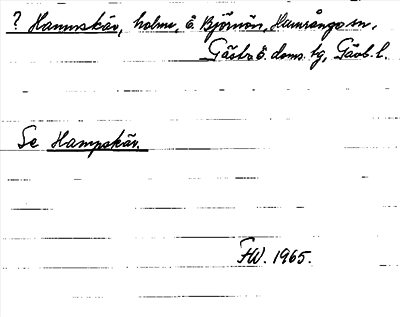 ? Hamnskär, holme, Ö. Björnön, Hamrånge sn,
Gästr. Ö. doms. tg, Gävl. l.
Se Hampskär.
FW. 1965.